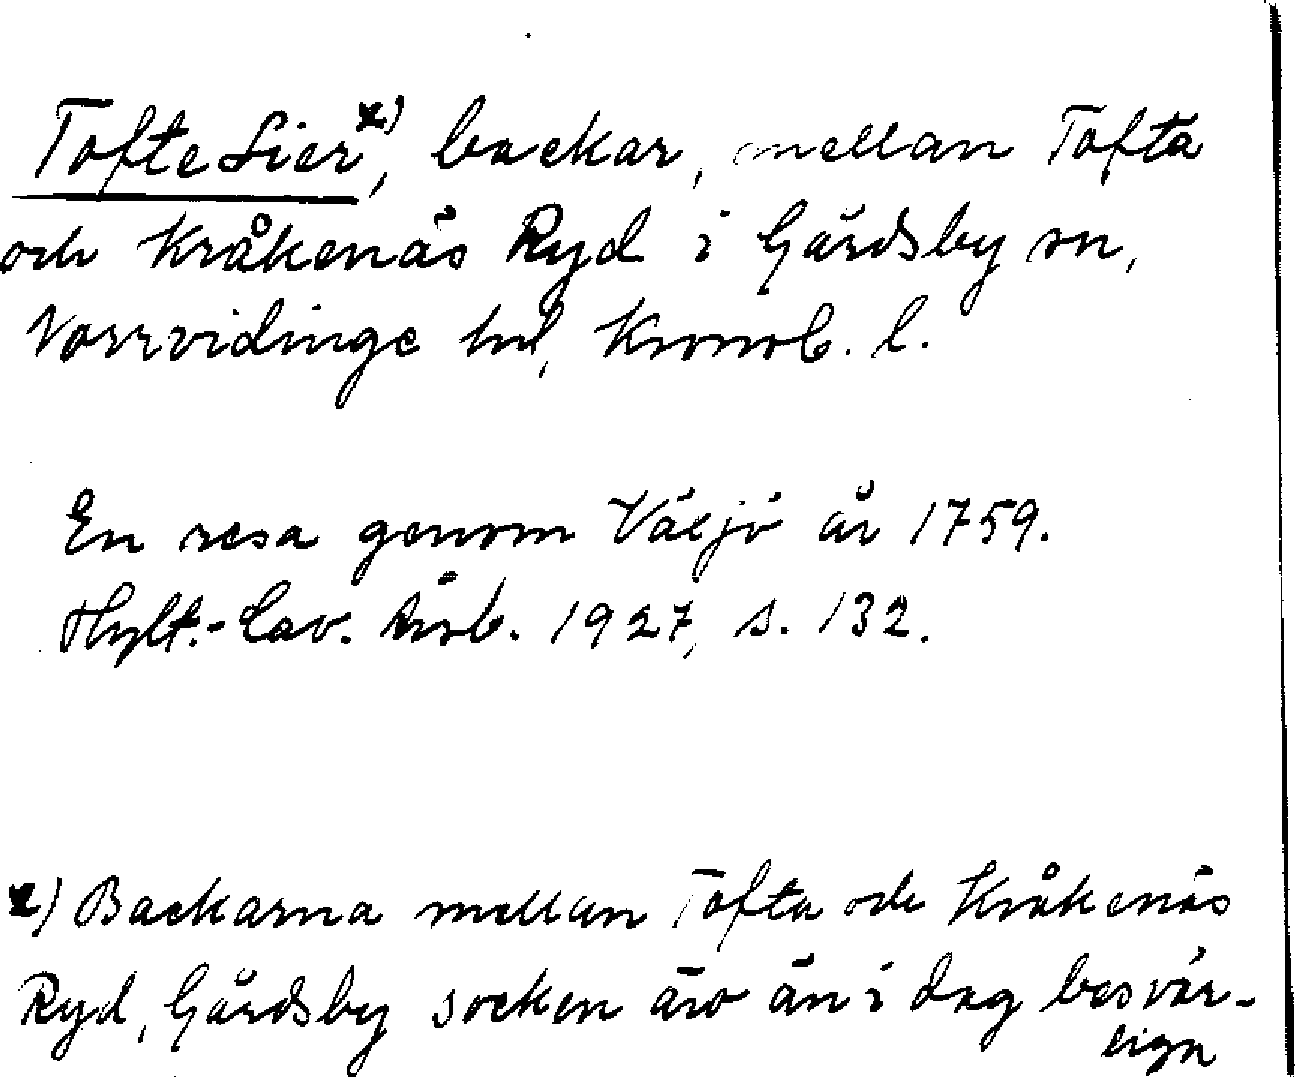 Tofte Lier x), backar, mellan Tofta
och Kråkenäs Ryd i Gårdsby sn,
Norrvidinge hd, Kronob. l.
En resa genom Växjö år 1759.
Hylt.-Cav. Årsb. 1927, s. 132.
x) Backarna mellan Tofta och Kråkenäs
Ryd, Gårdsby socken äro än i dag besvär-
liga